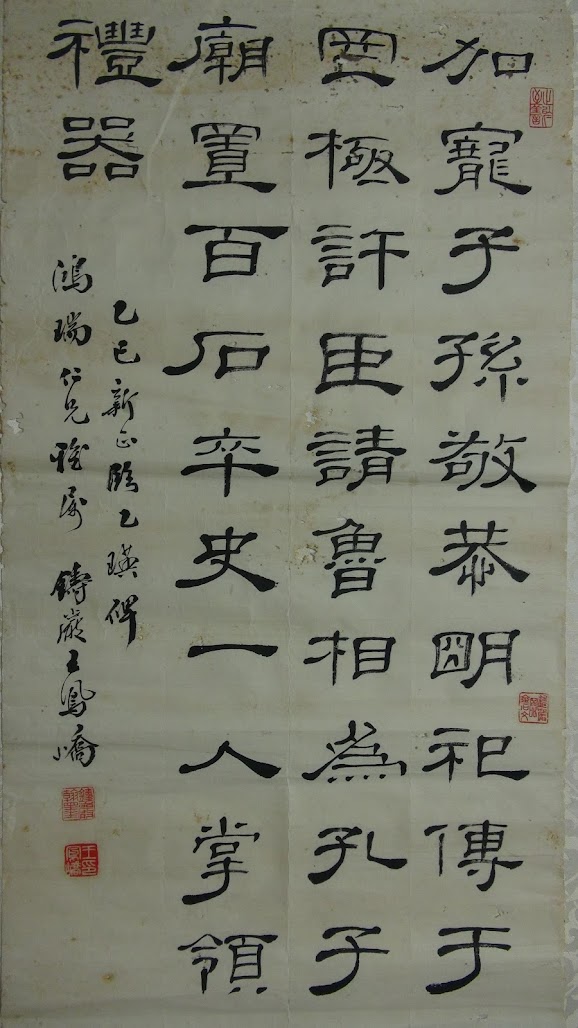 加寵子孫敬恭朙祀傳于
罔極許臣請魯相為孔子
廟置百石卒史一人掌領
禮器
乙巳新正臨乙瑛碑
鴻瑞仁兄雅屬 鑄巖王鳳嶠